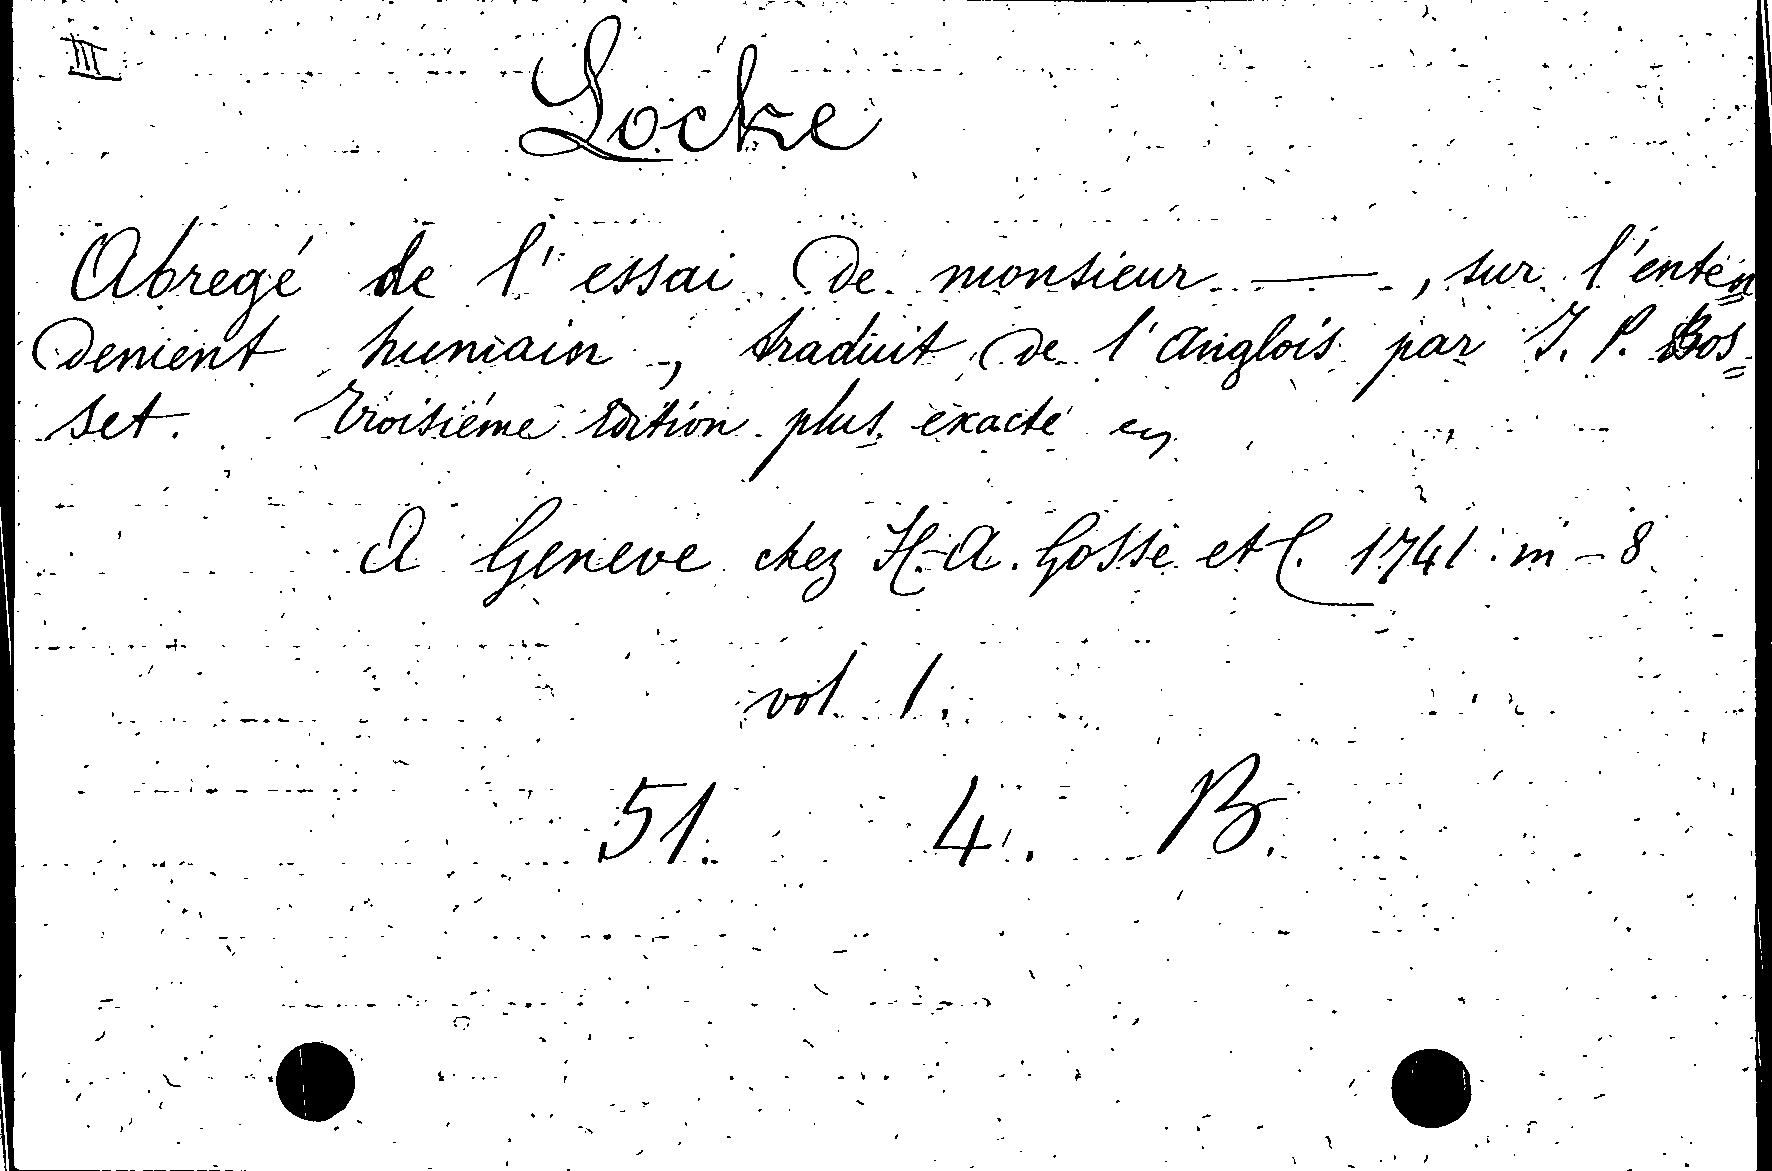 III
Locke
Abregé de l'essai de monsieur —, sur l'enten=
dement humain, traduit de l'Anglois par J. P. Bos=
set. Troisiéme Edition plus exacte
A Geneve chez H.-A. Gosse et C. 1741. in-8
vol 1.
51. 4. B.